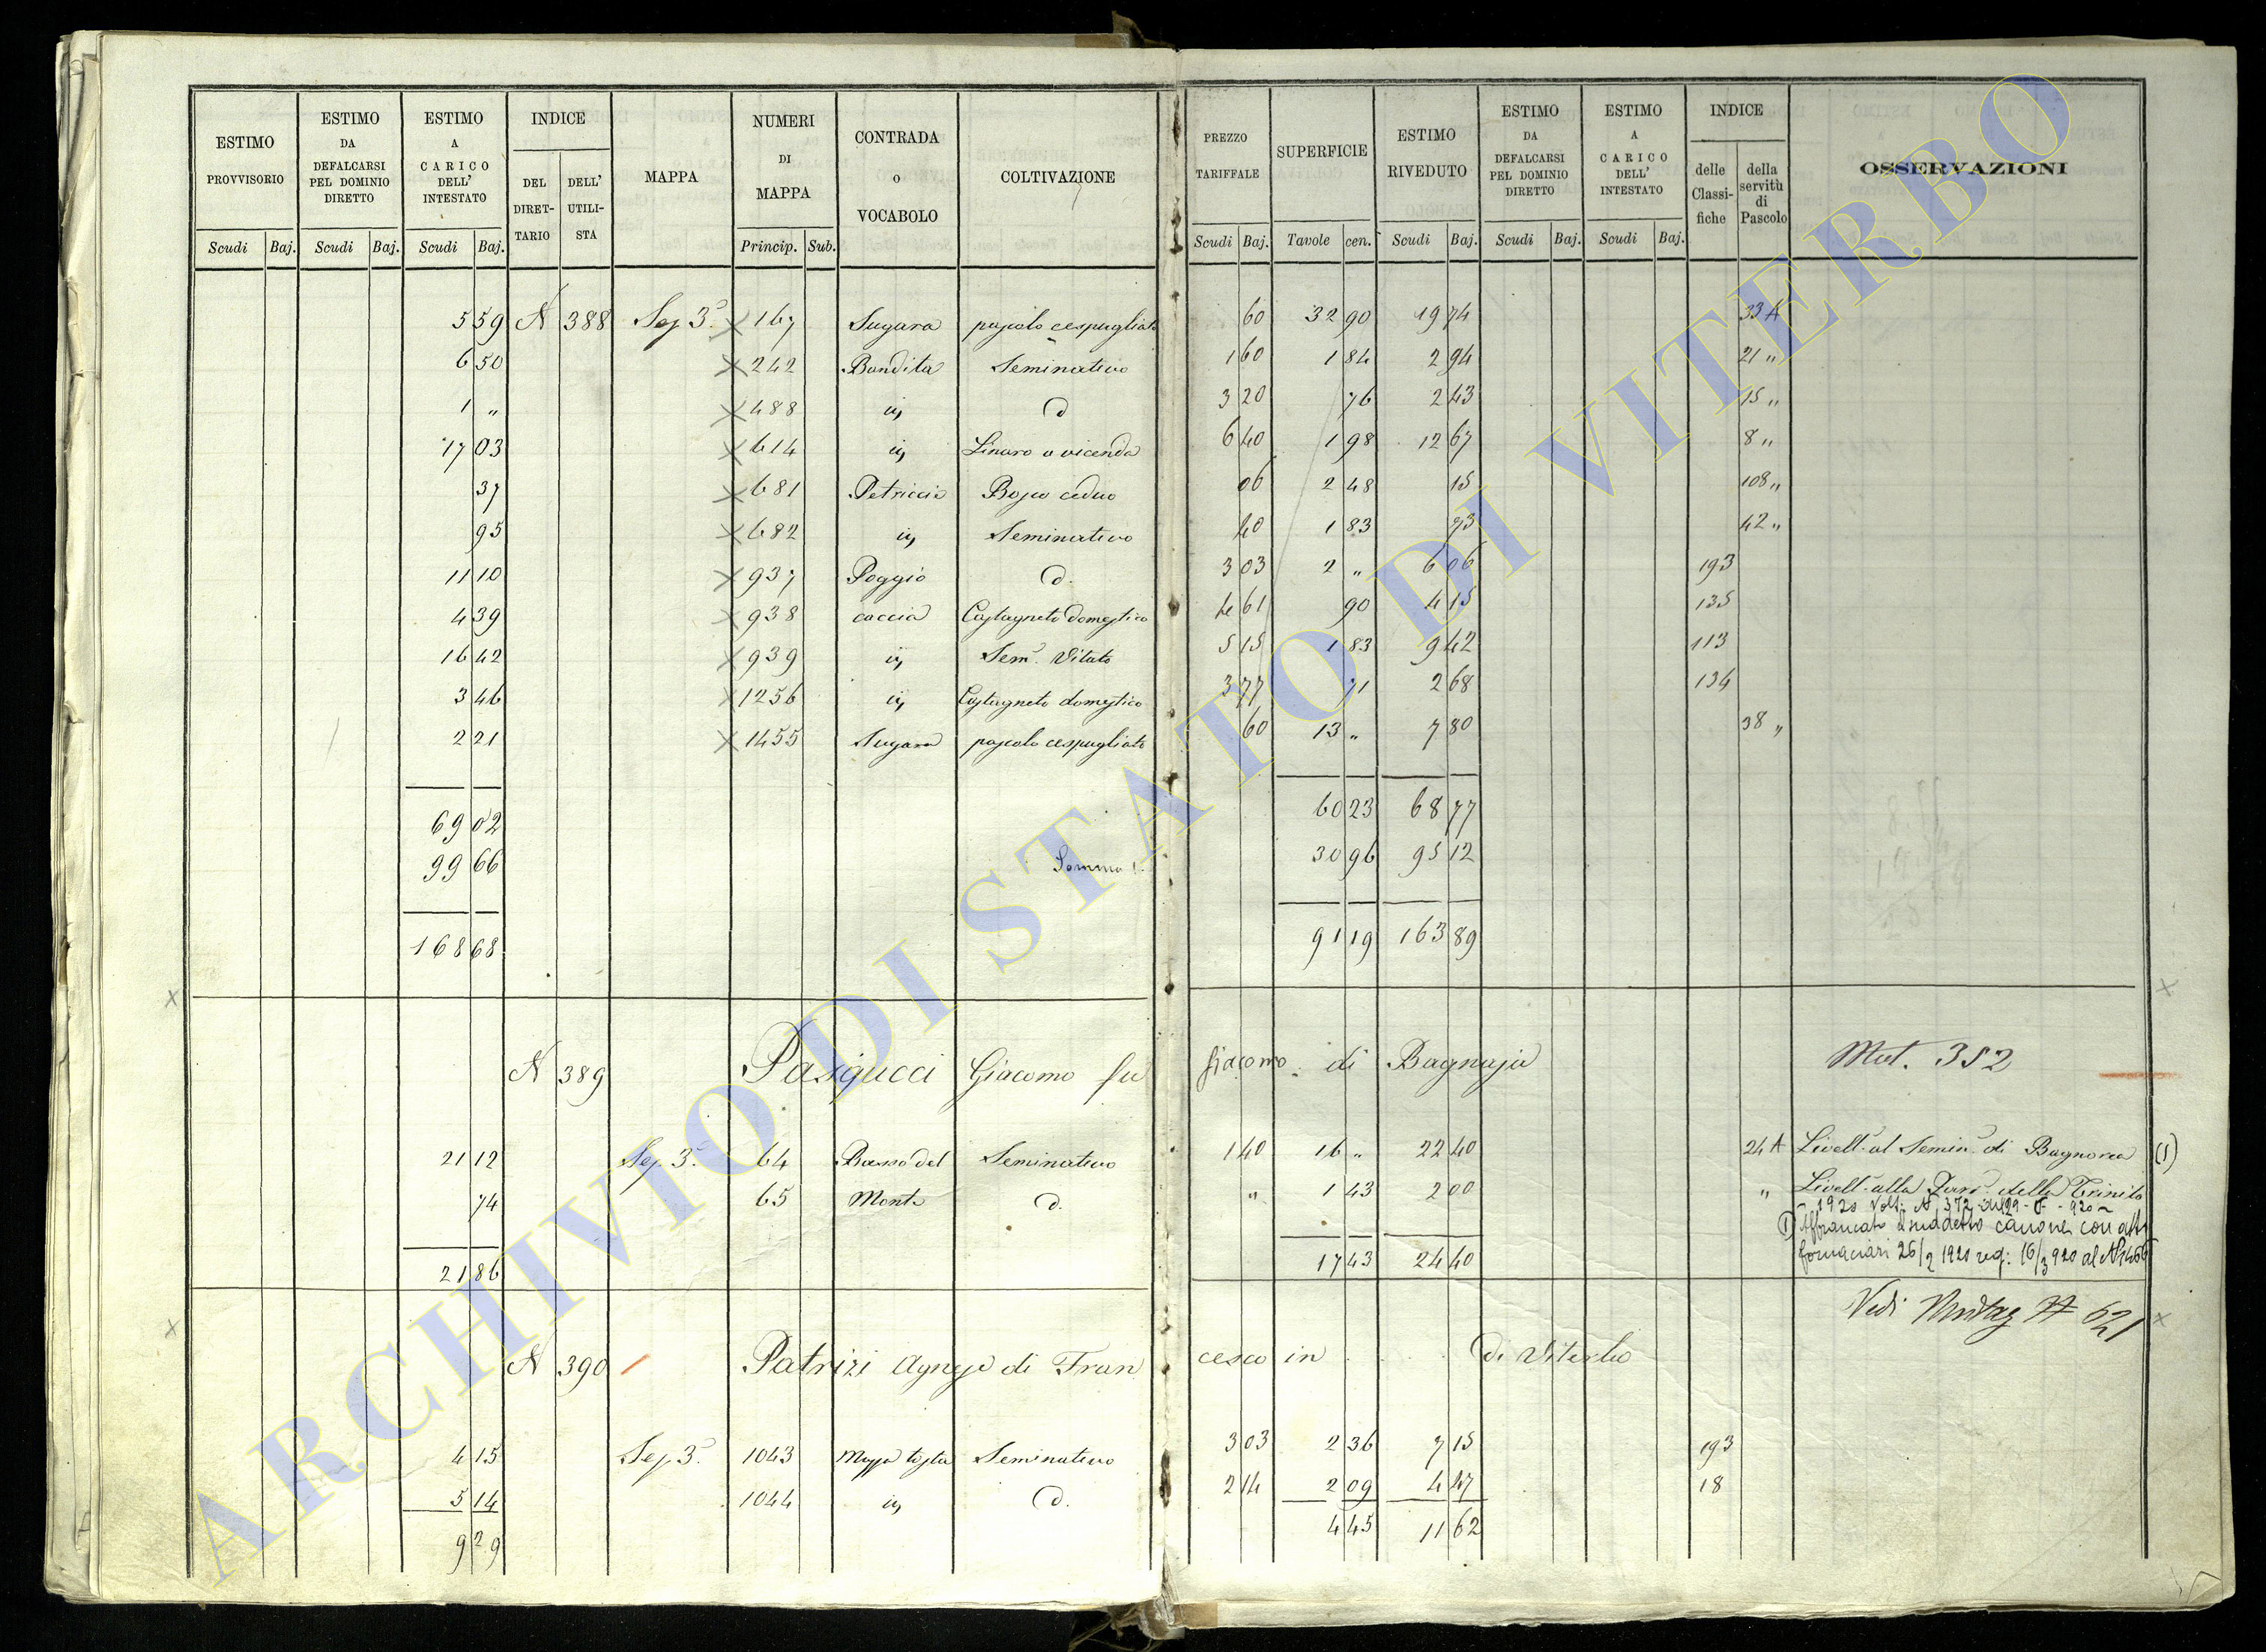 ESTIMO PROVVISORIO | ESTIMO DA DEFALCARSI PEL DOMINIO DIRETTO | ESTIMO A CARICO DELL' INTESTATO | INDICE DEL DIRET-TARIO | DELL' UTILI-STA | MAPPA | NUMERI DI MAPPA | CONTRADA O VOCABOLO | COLTIVAZIONE | PREZZO TARIFFALE | SUPERFICIE | ESTIMO RIVEDUTO | ESTIMO DA DEFALCARSI PEL DOMINIO DIRETTO | ESTIMO A CARICO DELL' INTESTATO | INDICE delle Classi-fiche | della servitù di Pascolo | OSSERVAZIONI
Scudi Baj. Scudi Baj. Scudi Baj. Princip. Sub. Scudi Baj. Tavole cen. Scudi Baj. Scudi Baj. Scudi Baj.
5 59 N 388 Sez 3ª 167 Sugara pascolo cespugliato 60 32 90 19 74 33 A
6 50 242 Bandita Seminativo 1 60 1 84 2 94 21 "
1 " 488 iv d 3 20 76 2 43 15 "
17 03 614 iv Linaro a vicenda 6 40 1 98 12 67 8 "
37 681 Petriccia Bosco ceduo 06 2 48 15 108 "
95 682 iv Seminativo 40 1 83 73 42 "
11 10 937 Poggio d. 3 03 2 " 6 06 193
4 39 938 caccia Castagneto domestico 4 61 90 4 15 135
16 42 939 iv Sem. Vitato 5 15 1 83 9 42 113
3 46 1256 iv Castagneto domestico 3 77 71 2 68 134
2 21 1455 Sugara pascolo cespugliato 60 13 " 7 80 38 "
69 02 60 23 68 77
99 66 Somma 30 96 95 12
168 68 91 19 163 89
N 389 Pasqucci Giacomo fu Giacomo di Bagnaja Mut. 352
21 12 Sez. 3ª 64 Basso del Seminativo 1 40 16 " 22 40 24 A Livell. al Semin. di Bagnorea (1)
74 65 Monte d. " 1 43 2 00 " Livell. alla Parr. della Trinità
1920 Volt. N 372
1) Affrancato suddetto canone con atto
21 86 17 43 24 40 fornaciari 26/2 1920 reg: 16/3 920 al N 1466
Vedi N 621
N 390 Patrizi Agnese di Francesco in di Viterbo
4 15 Sez 3ª 1043 Seminativo 3 03 2 36 7 15 193
5 14 1044 iv d. 2 14 2 09 4 47 18
9 29 4 45 11 62
ARCHIVIO DI STATO DI VITERBO